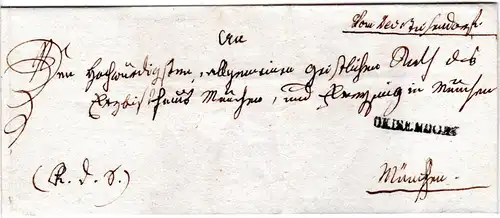 An
Den Hochwürdigsten, allgemeinen geistlichen Rath des
Erzbisthums München, und Freysing in München
GEISENDORF
(R. d. S.)
München.